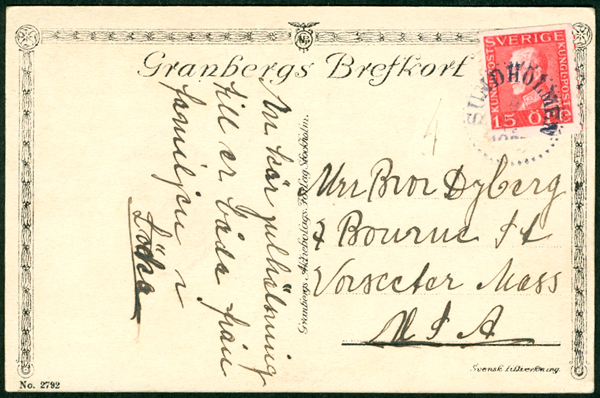 Granbergs Brefkort
SVERIGE
KUNGL.POST
KUNGL.POST
15 ÖRE
SUNDHOLMEN
4
En kär julhälsning
till er båda från
familjen i
Granbergs Aktiebolags Förlag, Stockholm.
Mrr Bror Dyberg
7 Bourne St
Vorsecter Mass
USA
Svensk tillverkning.
No. 2792